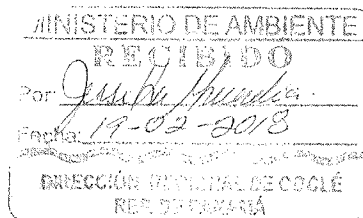 MINISTERIO DE AMBIENTE
RECIBIDO
Por:
Fecha: 19-02-2018
DIRECCIÓN REGIONAL DE COCLÉ
REP. DE PANAMÁ